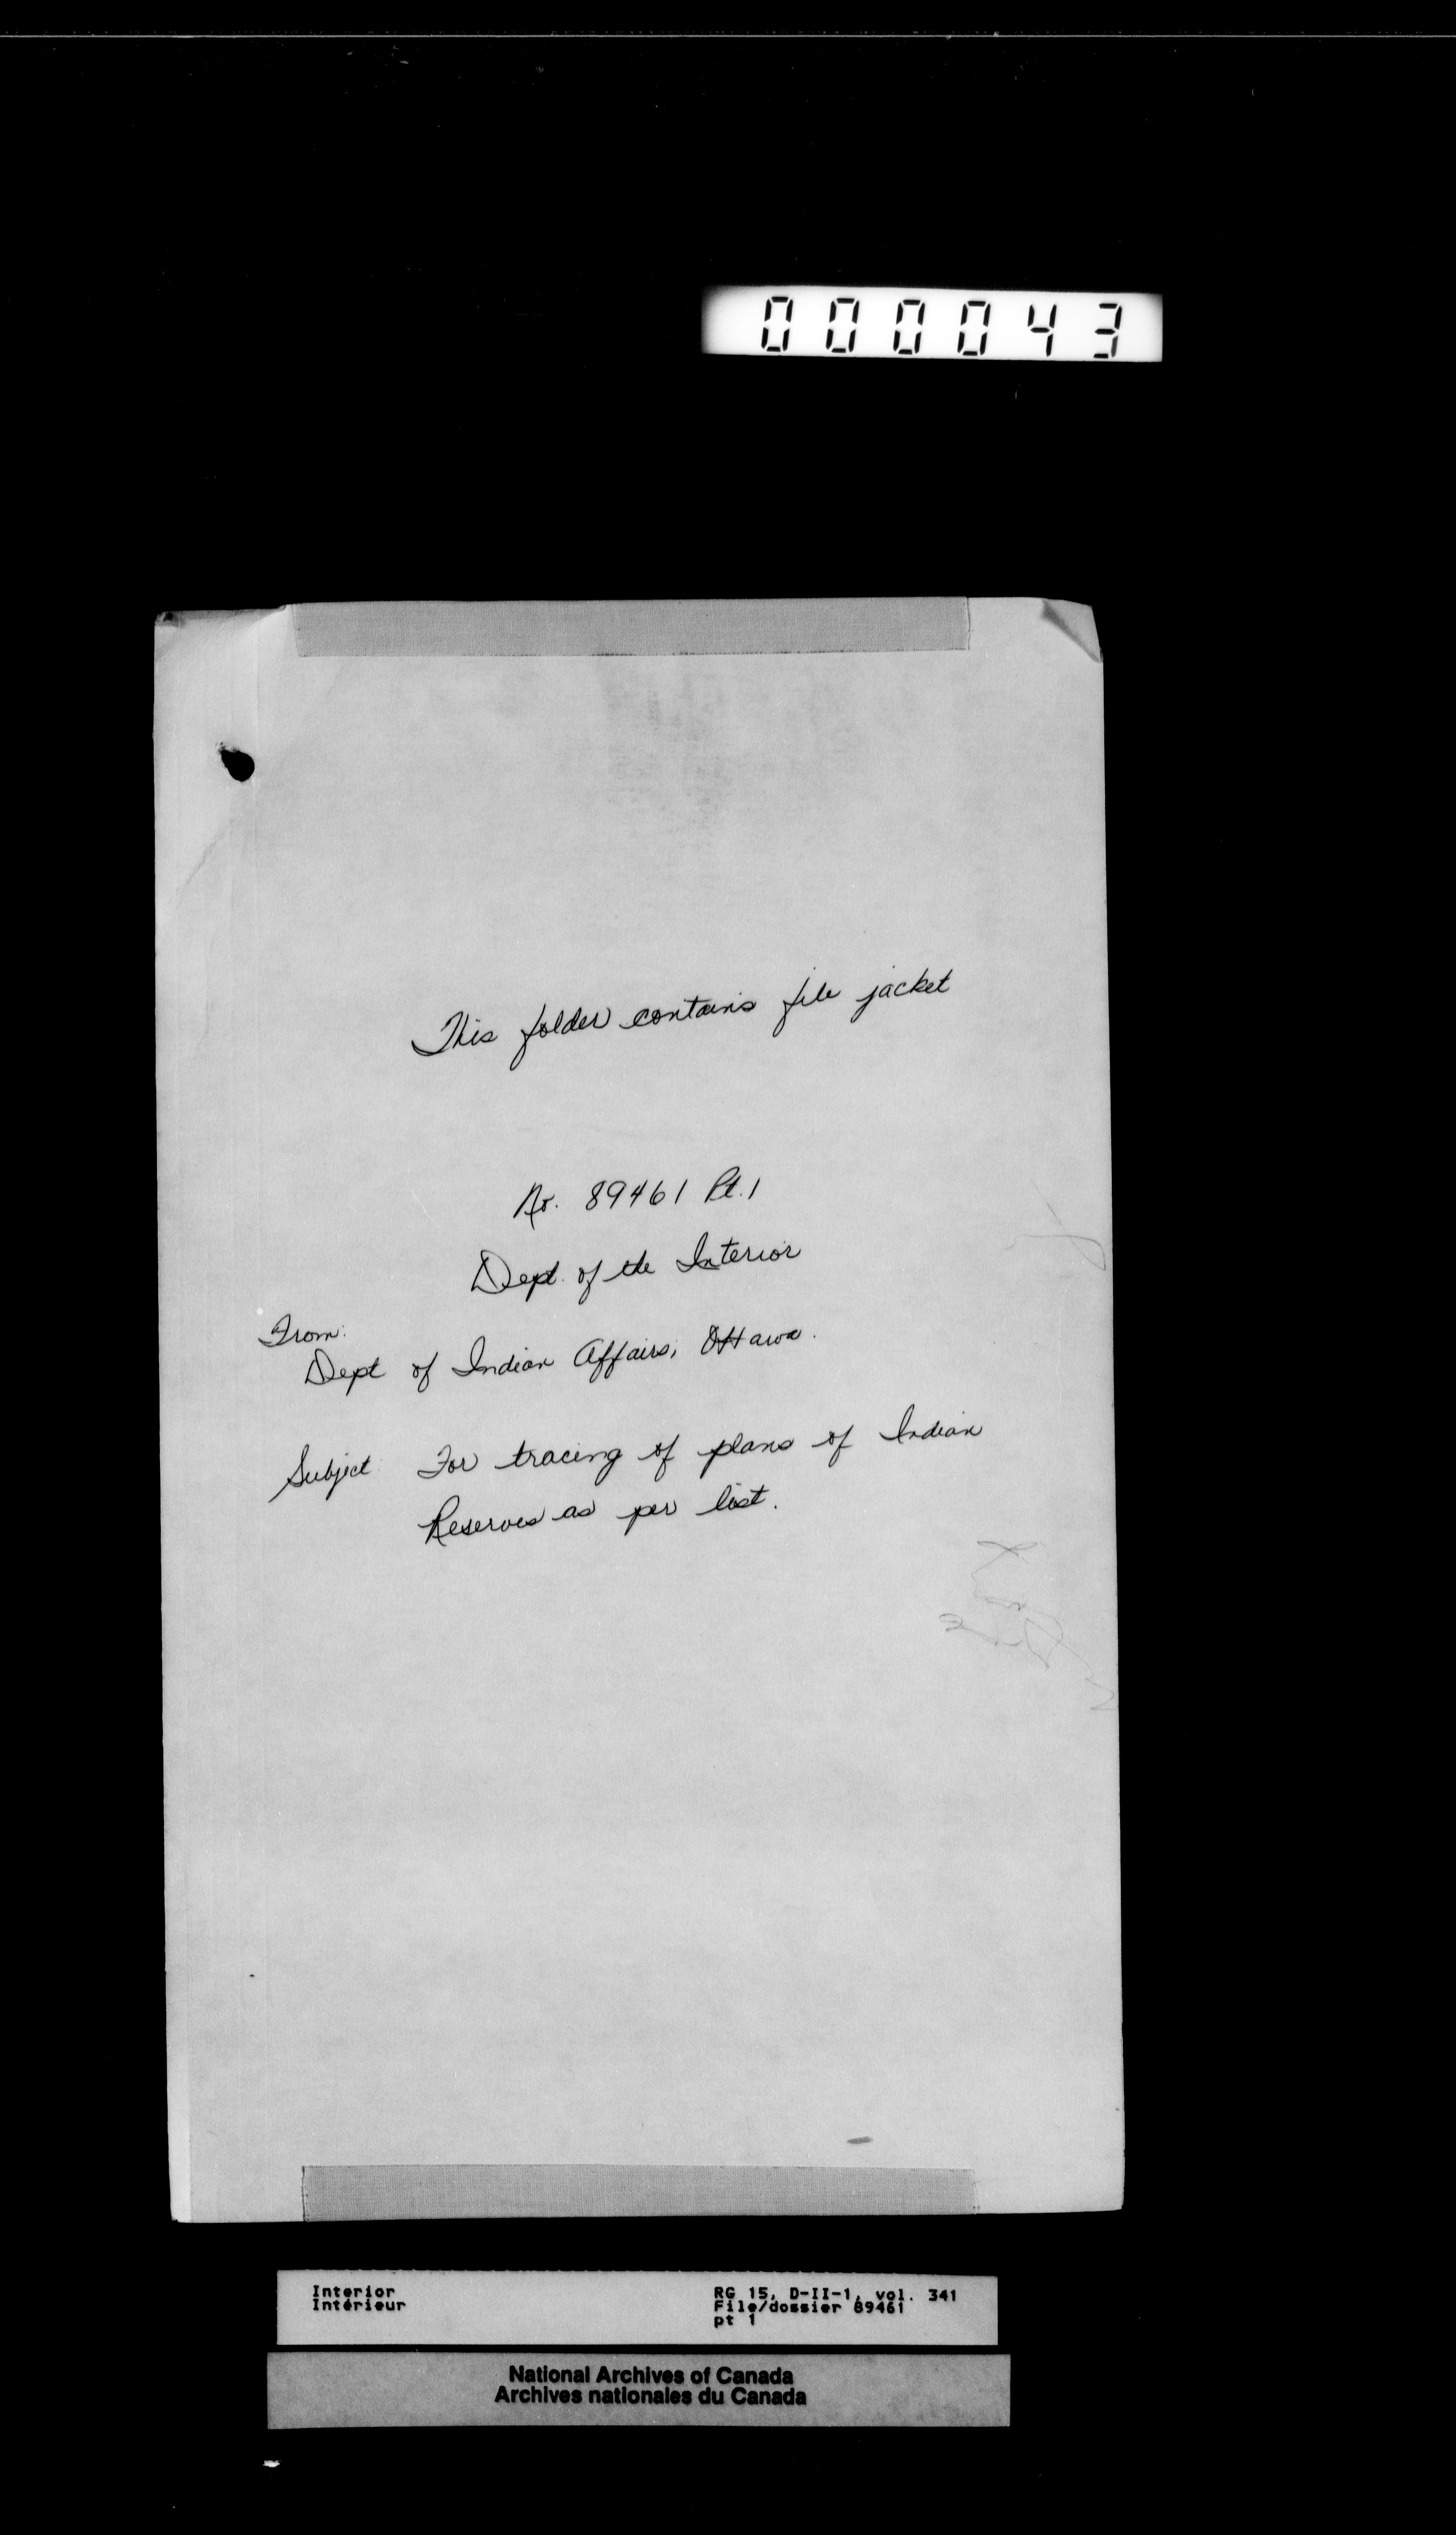 000043
This folder contains file jacket
No. 89461 Pt. 1
Dept. of the Interior
From:
Dept of Indian Affairs, Ottawa.
Subject: For tracing of plans of Indian
Reserves as per list.
Interior
Intérieur
RG 15, D-II-1, vol. 341
File/dossier 89461
pt 1
National Archives of Canada
Archives nationales du Canada